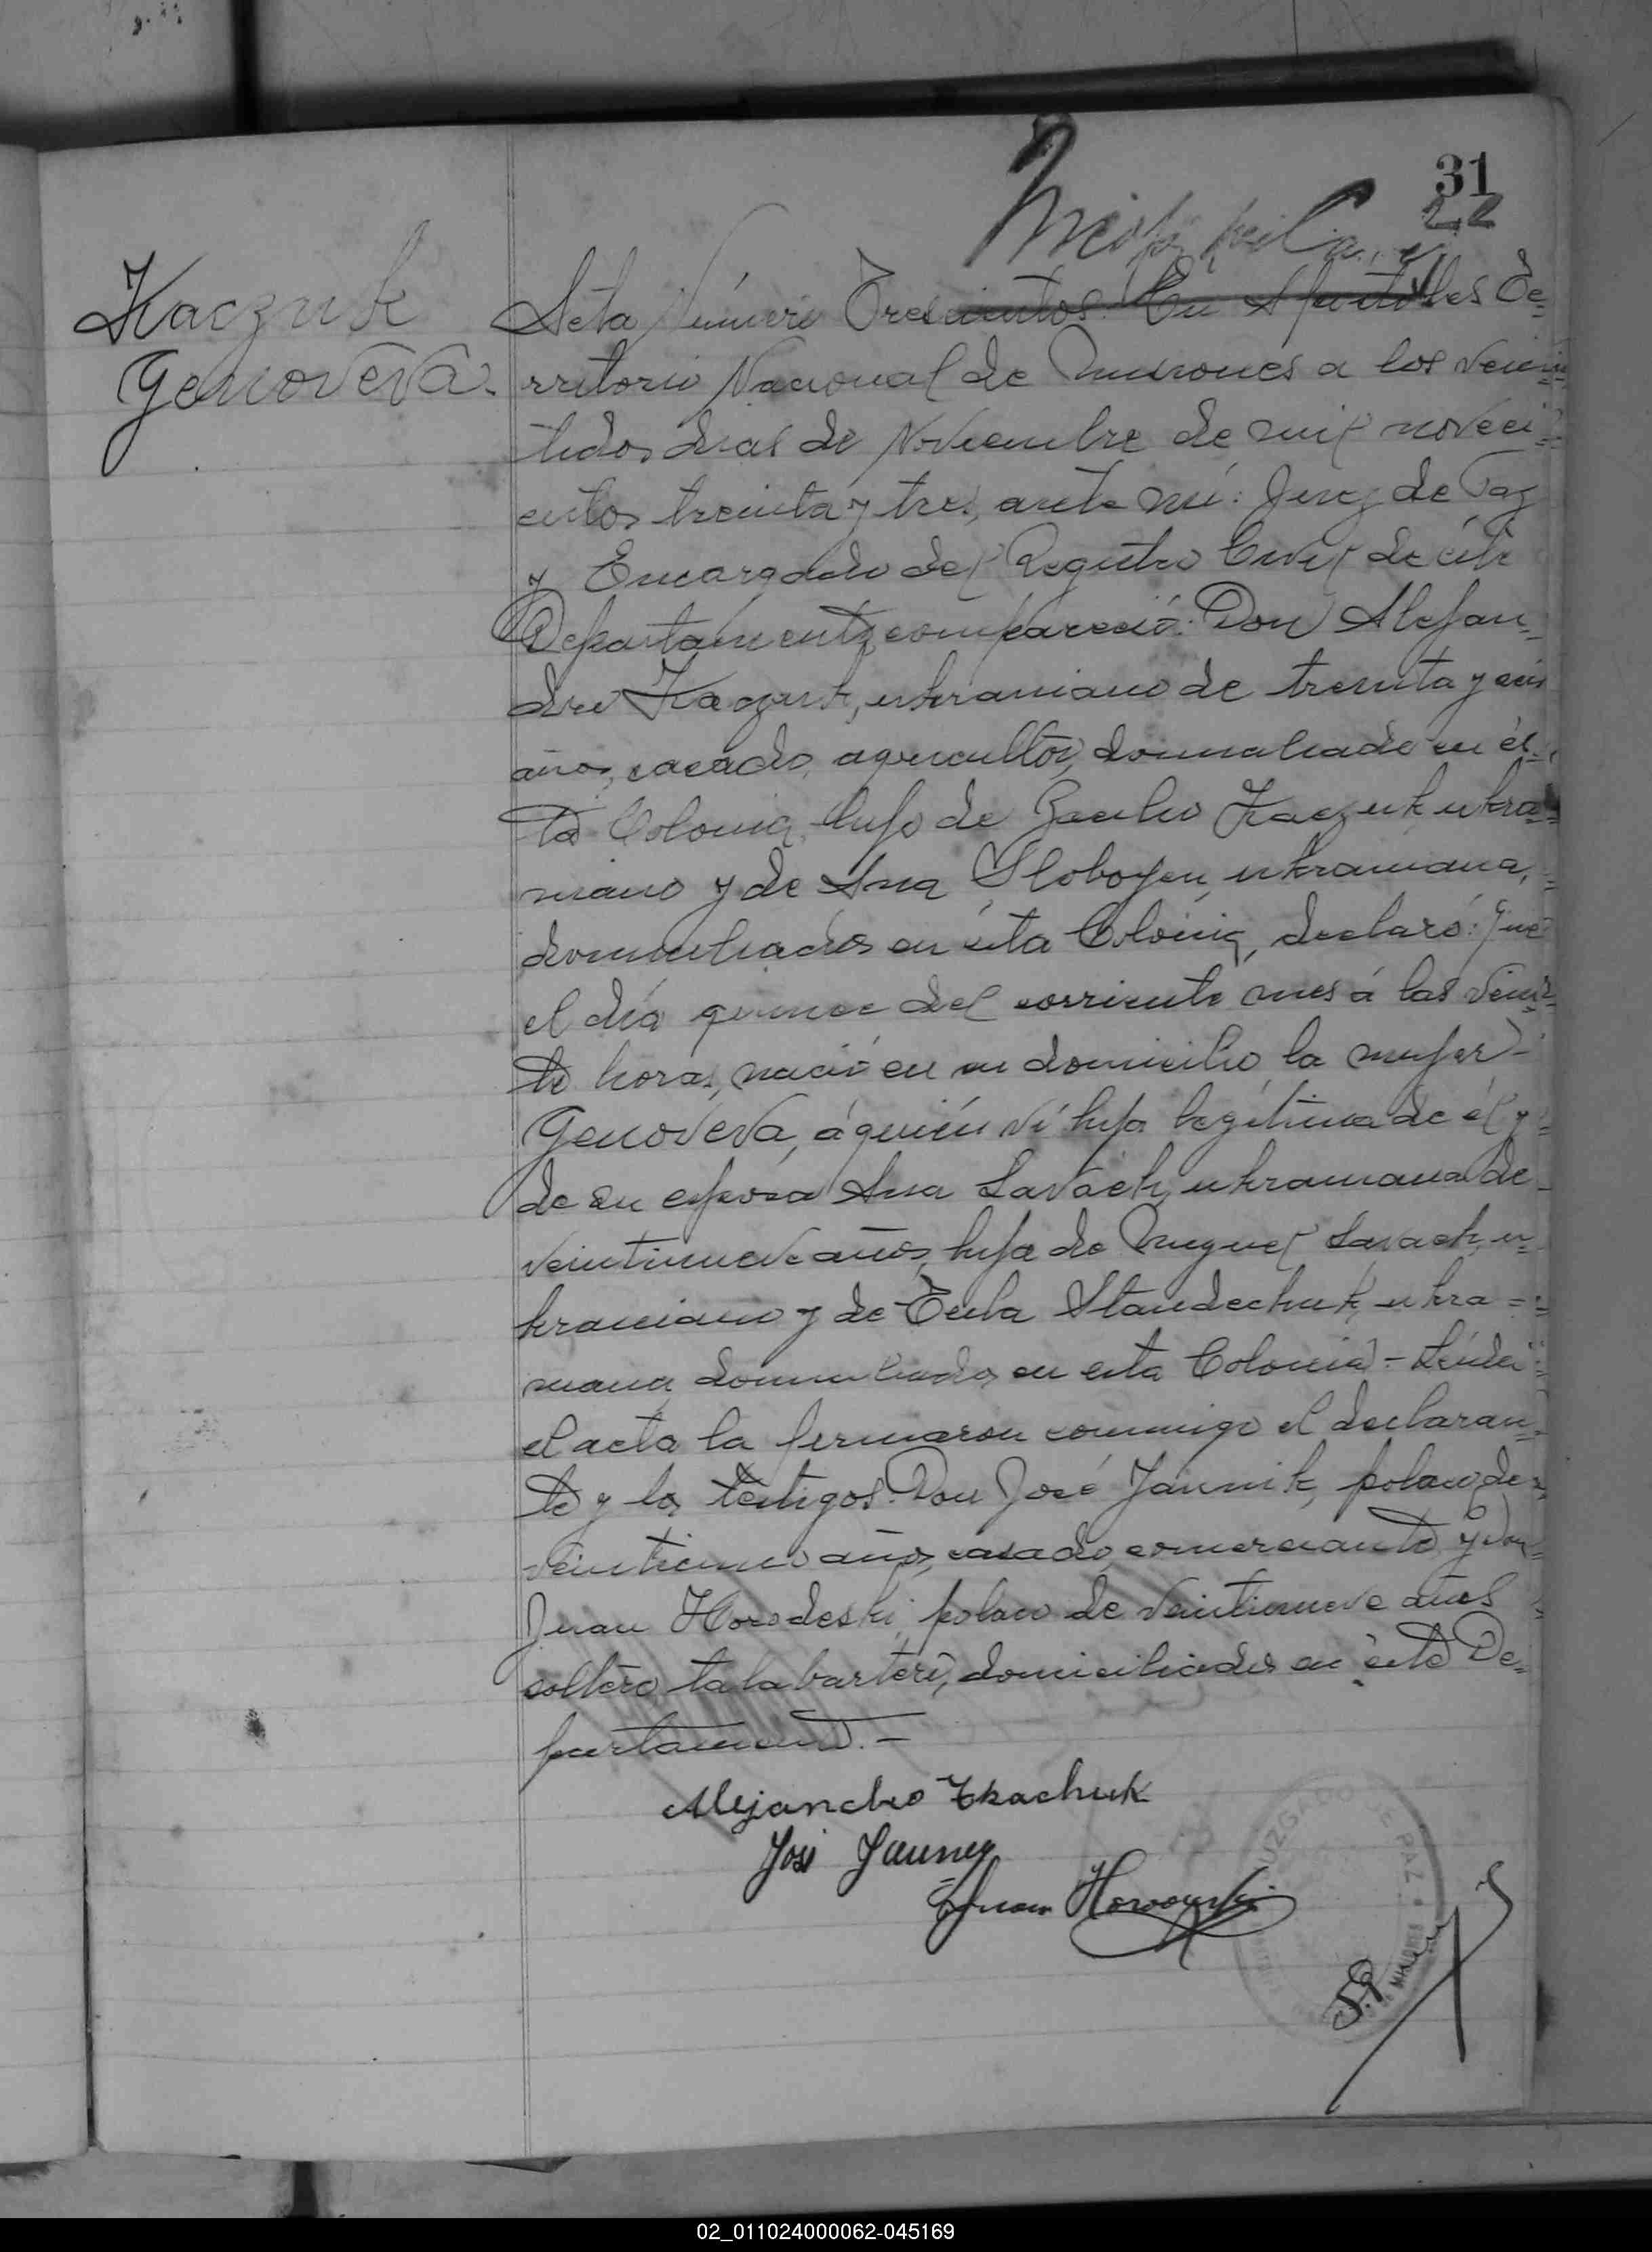 31
22
Kaczuk
Genoveva.
Acta Número Trescientos. En Apóstoles Te=
rritorio Nacional de Misiones a los vein=
tidos dias de Noviembre de mil noveci=
entos treinta y tres, ante mí: Juez de Paz
y Encargado del Registro Civil de éste
Departamento, compareció: Don Alejan=
dro Kaczuk, ukraniano de treinta y
años, casado, agricultor, domiciliado en és=
ta Colonia, hijo de Kaczuk ukra=
niano y de Ana Sloboyen, ukraniana,
domiciliados en ésta Colonia, declaró: Que
el día quince del corriente mes á las vein=
te horas, nació en su domicilio la mujer
Genoveva, á quién ví hija legítima de él y
de su esposa Ana Savach, ukraniana de
veintinueve años, hija de Miguel Savach, u=
kraniano y de Standechuk, ukra=
niana, domiciliados en esta Colonia.- Leída
el acta la firmaron conmigo el declaran=
te y los testigos: Don José Jaunik, polaco de
veinticinco años, casado, comerciante y don
Juan Horodeski, polaco de veintinueve años
soltero, talabartero, domiciliados en éste De=
partamento.-
Alejandro Tkachuk
José
Juan
JUZGADO DE PAZ
02_011024000062-045169